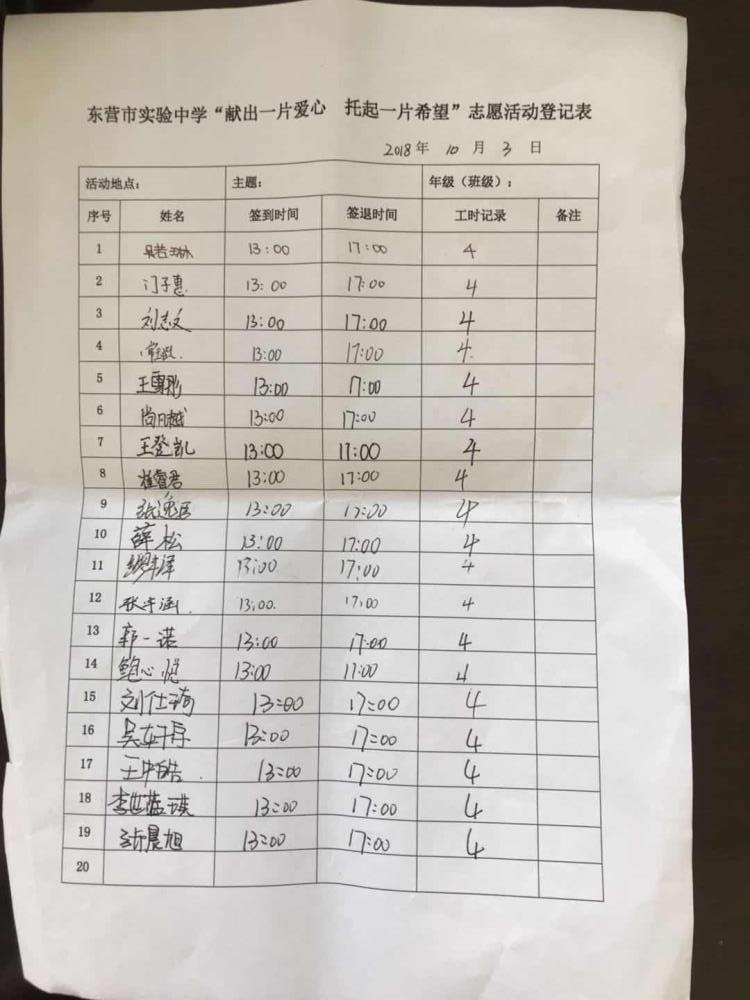 东营市实验中学“献出一片爱心 托起一片希望”志愿活动登记表
2018年 10 月 3 日
活动地点： 主题： 年级（班级）：
序号 姓名 签到时间 签退时间 工时记录 备注
1 吴若琳 13:00 17:00 4
2 门子惠 13:00 17:00 4
3 刘志文 13:00 17:00 4
4 13:00 17:00 4
5 王雪彤 13:00 17:00 4
6 尚月越 13:00 17:00 4
7 王登凯 13:00 17:00 4
8 崔睿君 13:00 17:00 4
9 张逸 13:00 17:00 4
10 薛松 13:00 17:00 4
11 13:00 17:00 4
12 张宇涵 13:00 17:00 4
13 郭一诺 13:00 17:00 4
14 鲍心悦 13:00 17:00 4
15 刘仕琦 13:00 17:00 4
16 吴 13:00 17:00 4
17 王中皓 13:00 17:00 4
18 李世蓝琪 13:00 17:00 4
19 晨旭 13:00 17:00 4
20